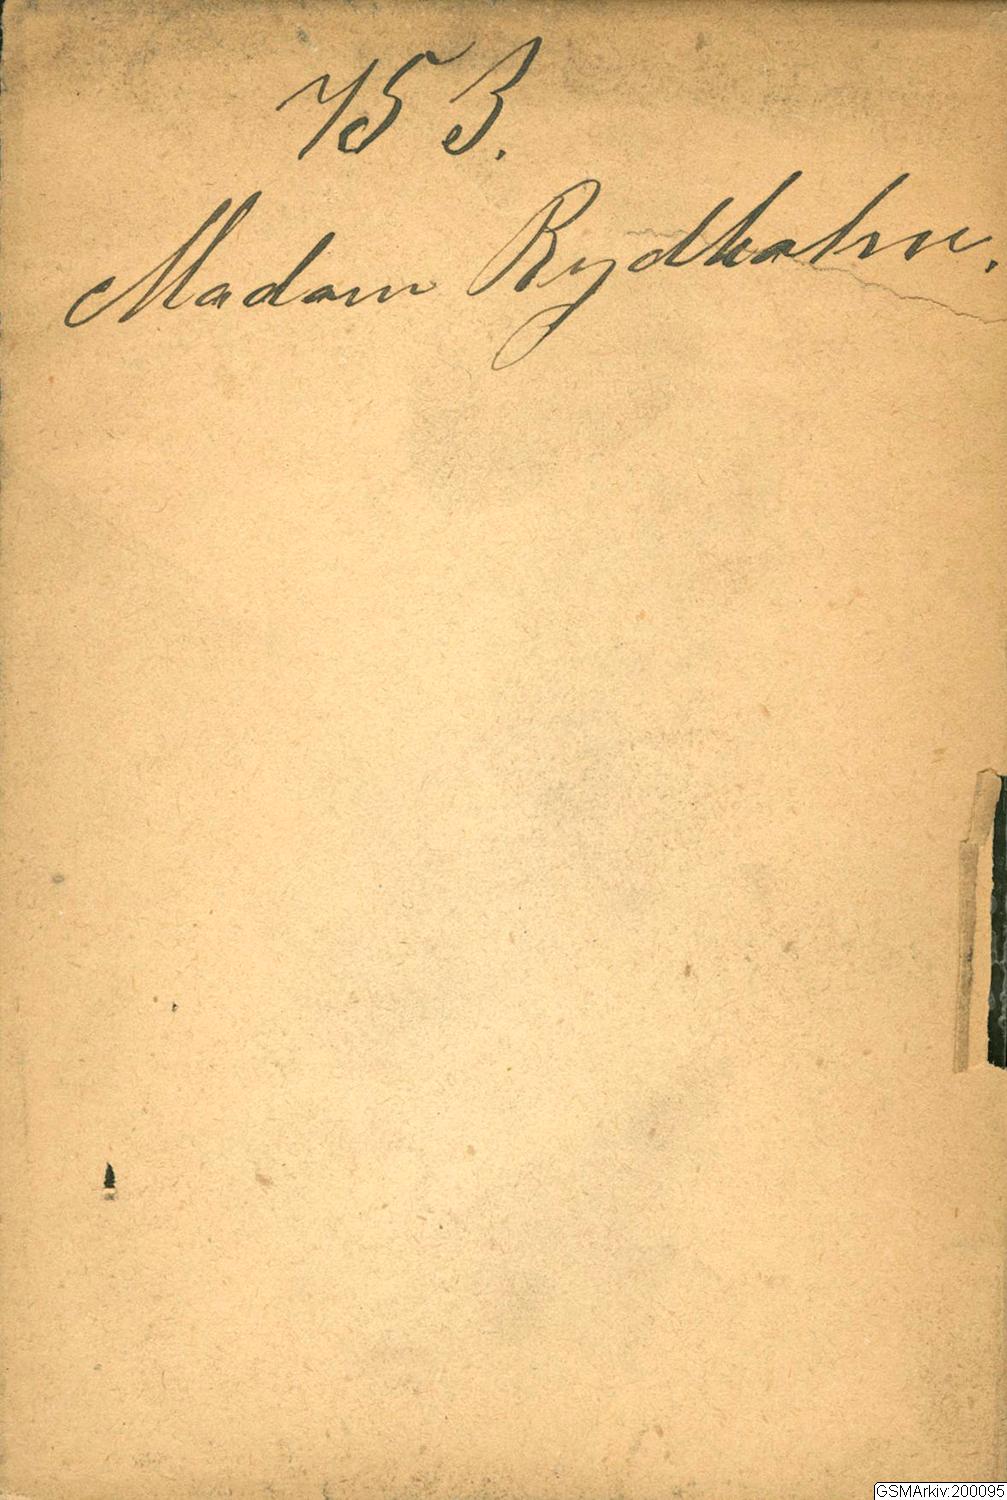 753.
Madam Rydholm.
GSMArkiv:200095